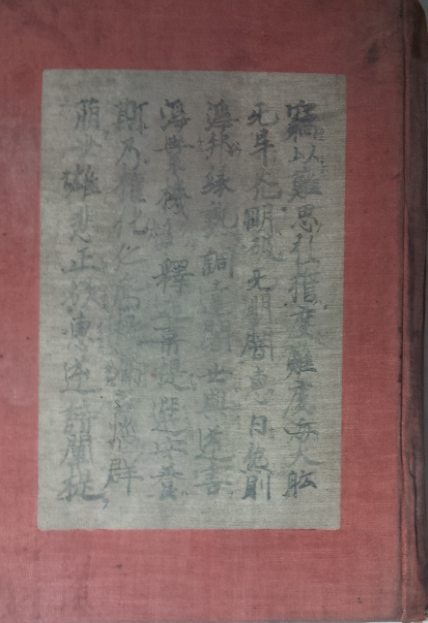 竊以難思弘誓度難度海大舩
无㝵光明破无明闇惠日然則
淨邦縁熟調達闍世興逆害
淨業機彰釋迦韋提選安養
斯乃權化仁齊救濟苦惱群
萠世雄悲正欲惠逆謗闡提